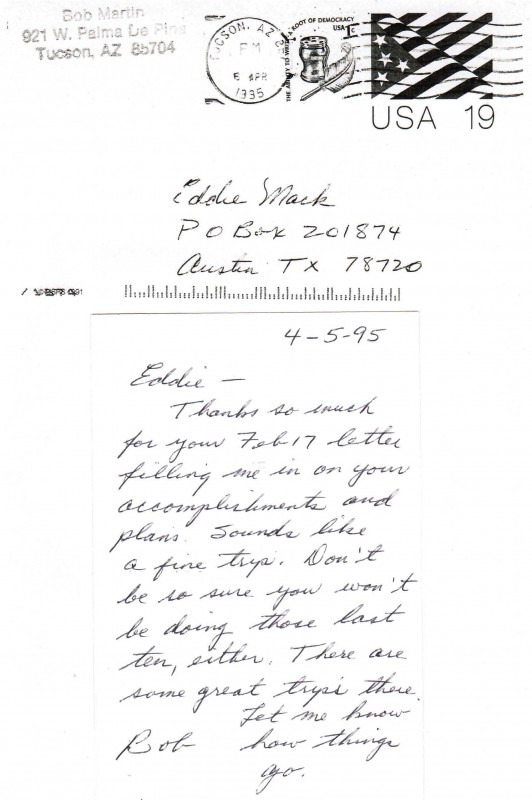 Bob Martin
921 W. Palma De Pina
Tucson, AZ 85704
TUCSON, AZ
PM
5 APR
1995
THE ABILITY TO WRITE A ROOT OF DEMOCRACY
USA 1c
USA 19
Eddie Mack
P O Box 201874
Austin TX 78720
4-5-95
Eddie —
Thanks so much
for your Feb 17 letter
filling me in on your
accomplishments and
plans. Sounds like
a fine trip. Don't
be so sure you won't
be doing those last
ten, either. There are
some great trips there.
Let me know
how things
go.
Bob